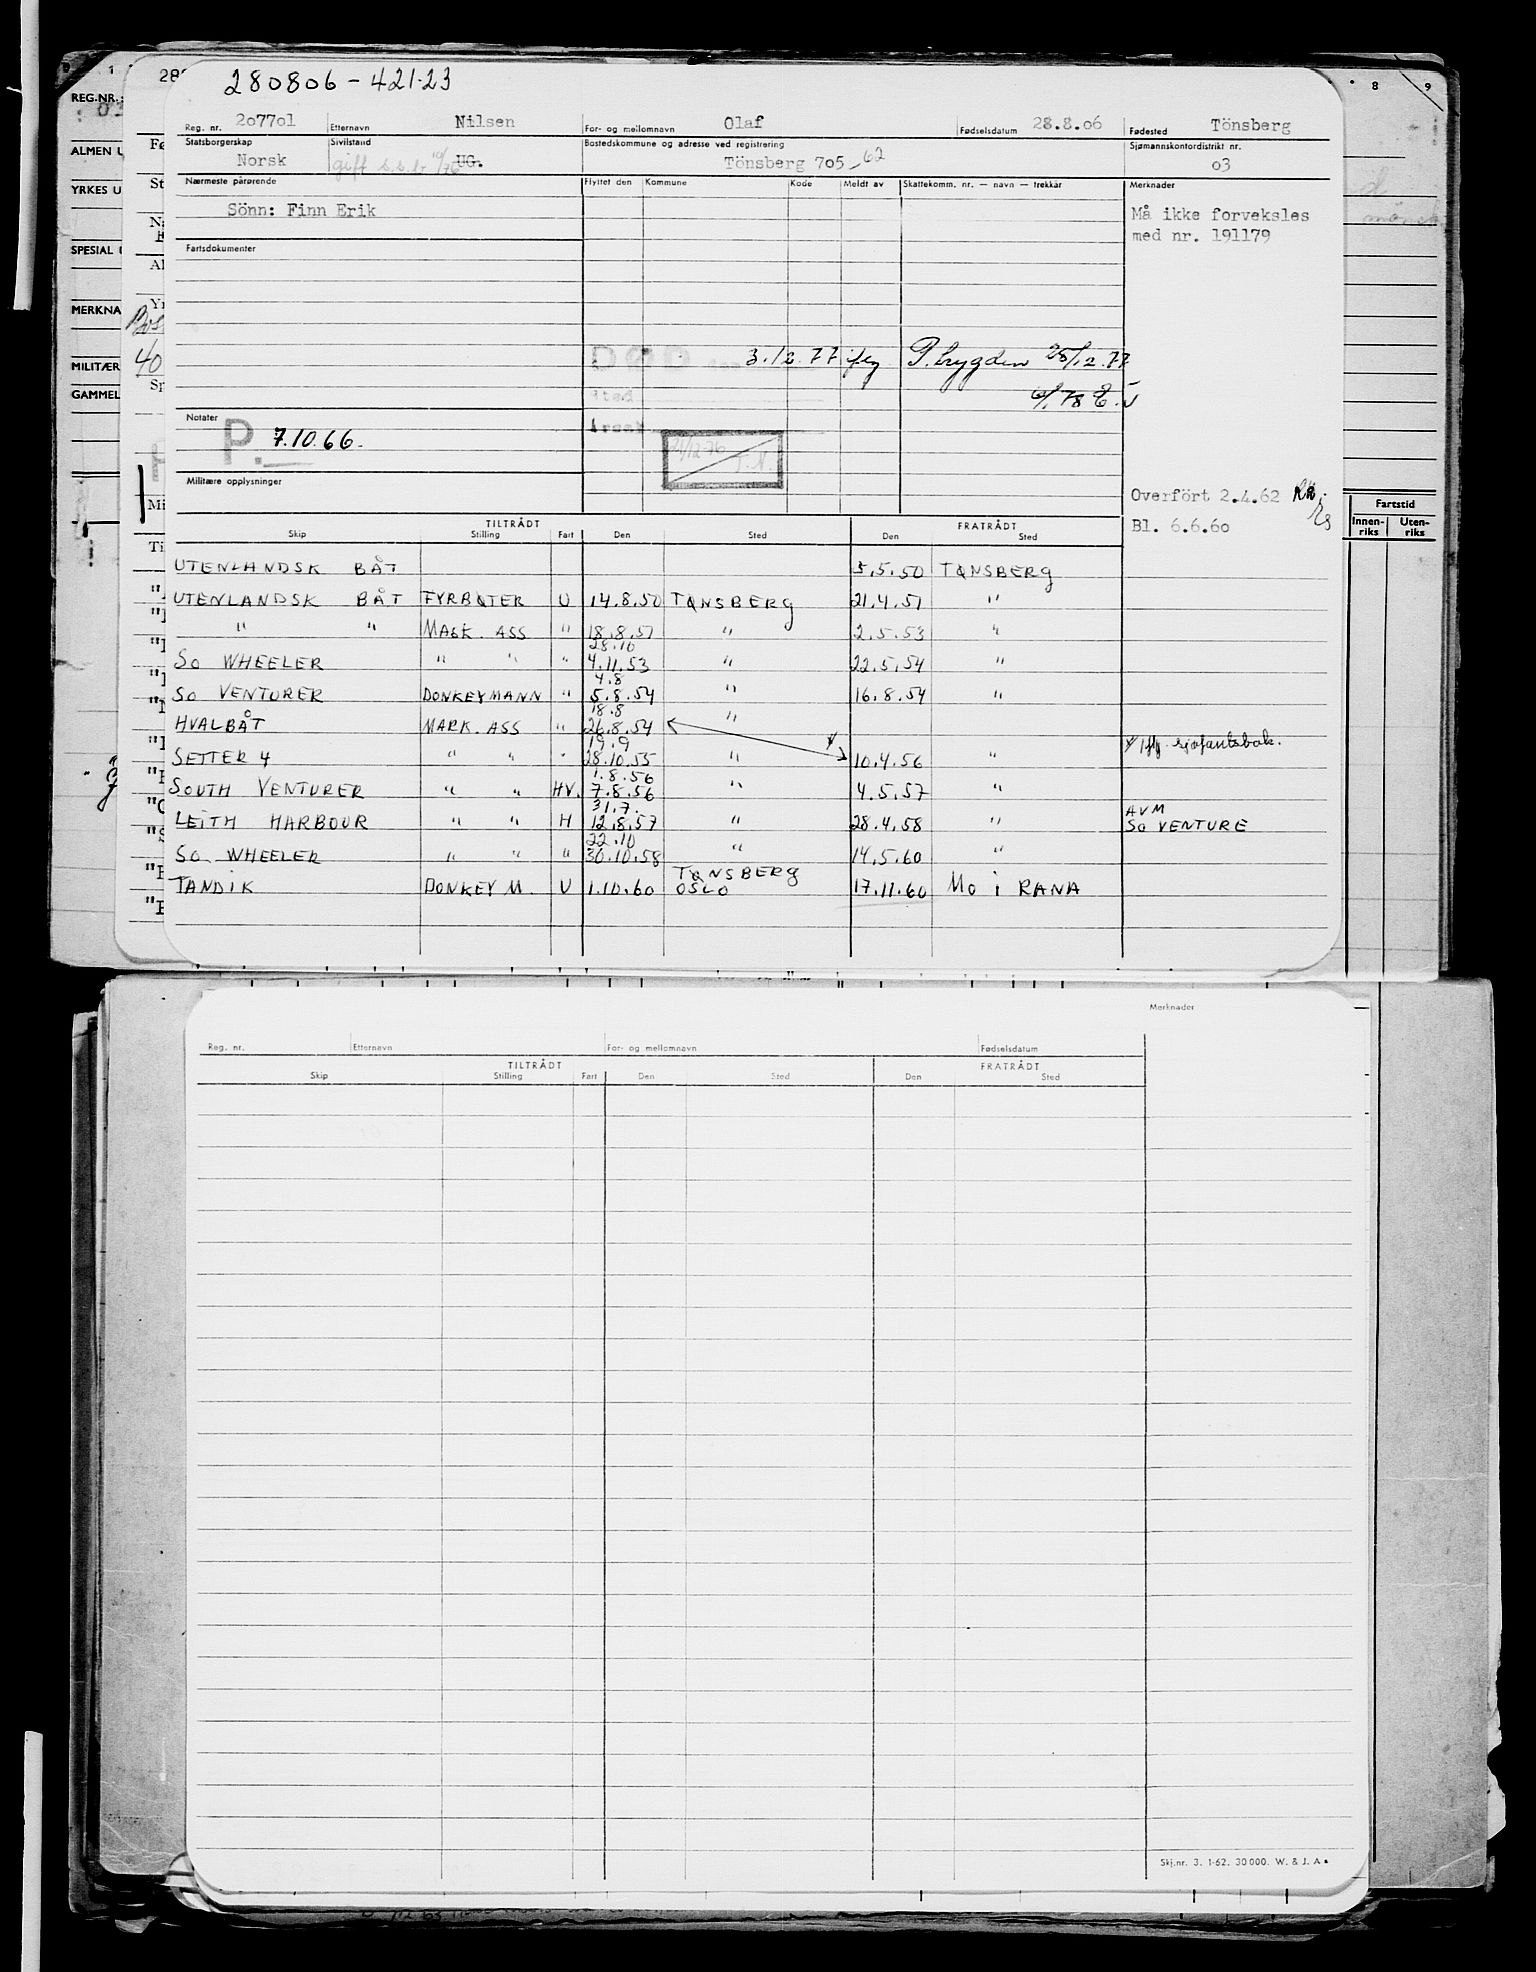 280806 - 421.23
1
8
9
28
REG.NR.
ALMEN U
YRKES U
SPESIAL U
MERKNA
MILITÆR
GAMMEL
Reg. nr. 207701 Etternavn Nilsen For- og mellomnavn Olaf Fødselsdatum 28.8.06 Fødested Tönsberg
Statsborgerskap Sivilstand Bostedskommune og adresse ved registrering Sjømannskontordistrikt nr.
Norsk gift s.s.b 10/76 UG. Tönsberg 705 - 62 03
Nærmeste pårørende Flyttet den Kommune Kode Meldt av Skattekomm. nr. — navn — trekkår Merknader
Sönn: Finn Erik Må ikke forveksles
med nr. 191179
Fartsdokumenter
DØD 3.12.77 iflg P. trygden 28/12.77
sted
Årsak
Notater
P. 7.10.66.
21/12-76
Militære opplysninger
Overfört 2.4.62
Bl. 6.6.60
Fartstid
Innen-riks Uten-riks
TILTRÅDT FRATRÅDT
Skip Stilling Fart Den Sted Den Sted
UTENLANDSK BÅT 5.5.50 TØNSBERG
UTENLANDSK BÅT FYRBØTER U 14.8.50 TØNSBERG 21.4.51 "
" " MASK. ASS " 18.8.51 " 2.5.53 "
28.10
SO WHEELER " " " 4.11.53 " 22.5.54 "
4.8
SO VENTURER DONKEYMANN " 5.8.54 " 16.8.54 "
18.8
HVALBÅT MARK. ASS " 26.8.54 "
19.9
SETTER 4 " " " 28.10.55 " 10.4.56 " iflg. sjøfartsbok.
1.8.56
SOUTH VENTURER " " HV. 7.8.56 " 4.5.57 "
31.7.
LEITH HARBOUR " " H 12.8.57 " 28.4.58 " AVM
SO VENTURE
22.10
SO WHEELER " " " 30.10.58 " 14.5.60 "
TØNSBERG
TANDIK DONKEY M. U 1.10.60 OSLO 17.11.60 MO i RANA
Merknader
Reg. nr. Etternavn For- og mellomnavn Fødselsdatum
TILTRÅDT FRATRÅDT
Skip Stilling Fart Den Sted Den Sted
Skj.nr. 3. 1-62. 30 000. W. & J. A •